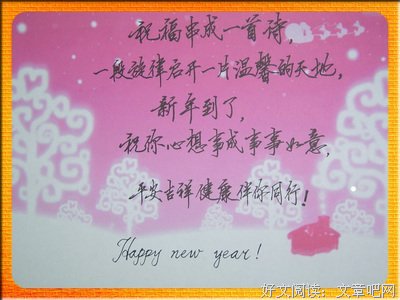 祝福串成一首诗,
一段旋律启开一片温馨的天地,
新年到了,
祝你心想事成事事如意,
平安吉祥健康伴你同行!
Happy new year!
好文阅读：文章吧网